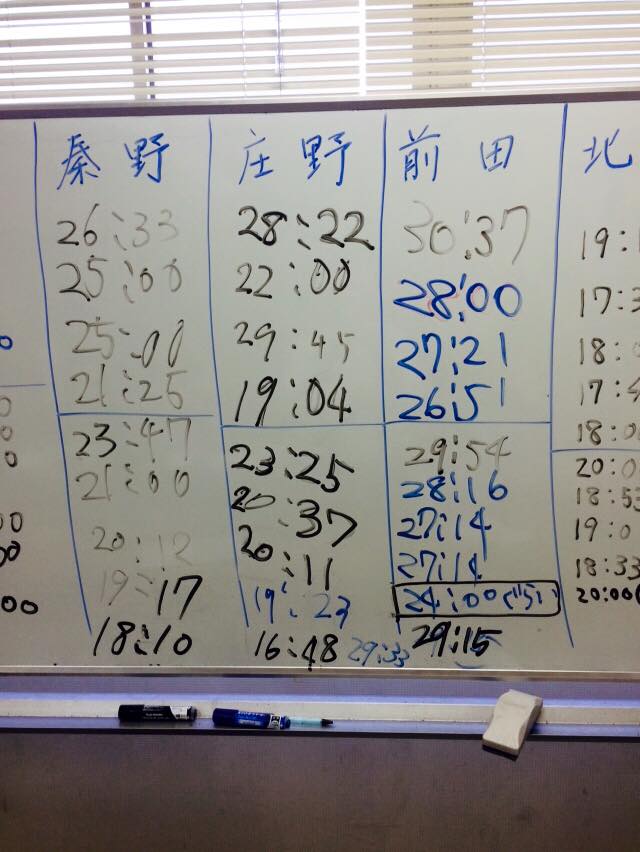 秦野
26:33
25:00
25:00
21:25
23:47
21:00
20:12
19:17
18:10
庄野
28:22
22:00
29:45
19:04
23:25
20:37
20:11
19:23
16:48
29:33
前田
30:37
28:00
27:21
26:51
29:54
28:16
27:14
27:14
24:00ぐらい
29:15
北
19:
17:3
18:0
17:4
18:0
20:0
18:53
19:0
18:33
20:00
0
0
0
0
00
00
:00